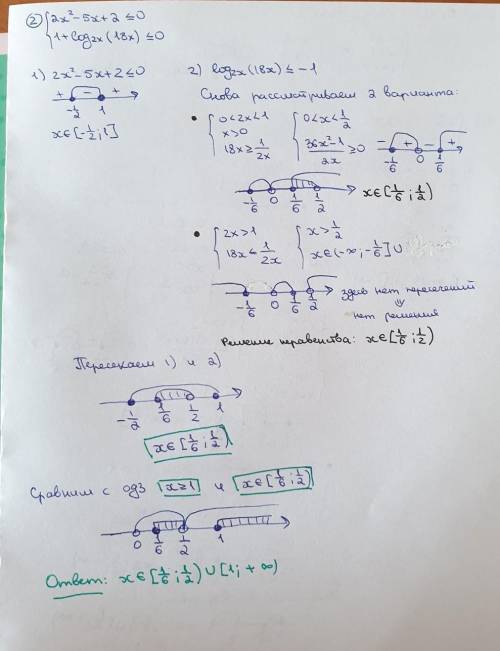 ② { 2x² - 5x + 2 ≤ 0
1 + log₂ₓ(18x) ≤ 0
1) 2x² - 5x + 2 ≤ 0
+ - +
-1/2 1
x ∈ [-1/2; 1]
2) log₂ₓ(18x) ≤ -1
Снова рассматриваем 2 варианта:
• { 0 < 2x < 1
x > 0
18x ≥ 1/2x
{ 0 < x < 1/2
(36x² - 1)/2x ≥ 0
- + - +
-1/6 0 1/6
-1/6 0 1/6 1/2 x
x ∈ [1/6; 1/2)
• { 2x > 1
18x ≤ 1/2x
{ x > 1/2
x ∈ (-∞; -1/6] ∪
-1/6 0 1/6 1/2
здесь нет пересечений
⇓
нет решения
Решение неравенства: x ∈ [1/6; 1/2)
Пересекаем 1) и 2)
-1/2 1/6 1/2 1
x ∈ [1/6; 1/2)
Сравним с одз x ≥ 1 и x ∈ [1/6; 1/2)
0 1/6 1/2 1
Ответ: x ∈ [1/6; 1/2) ∪ [1; +∞)